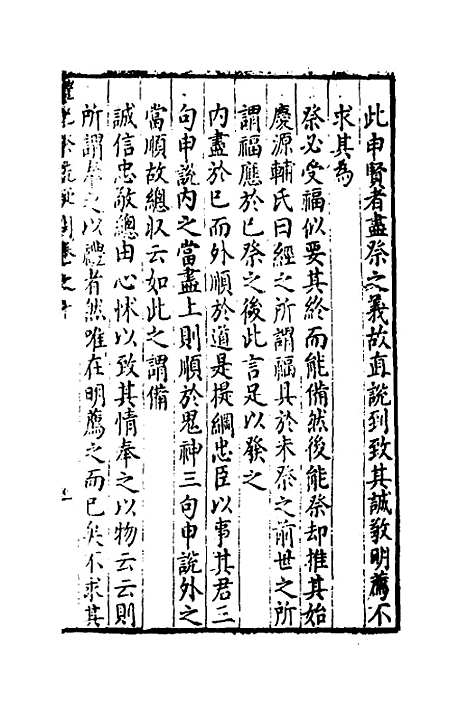 此申賢者盡祭之義故直說到致其誠敬明薦不
求其為
祭必受福似要其終而能備然後能祭却推其始
慶源輔氏曰經之所謂福具於未祭之前世之所
謂福應於已祭之後此言足以發之
内盡於已而外順於道是提綱忠臣以事其君三
句申說内之當盡上則順於鬼神三句申說外之
當順故總収云如此之謂備
誠信忠敬總由心怵以致其情奉之以物云云則
所謂奉之以禮者然唯在明薦之而已矣不求其